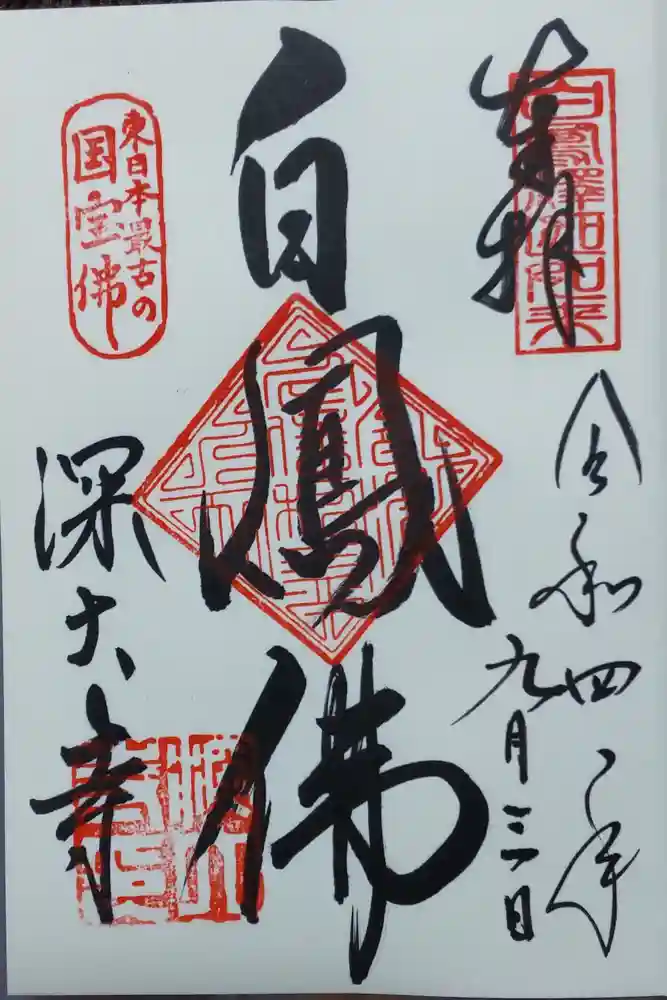 奉拝
白鳳釈迦如来
令和四年
九月三日
白鳳佛
東日本最古の
国宝佛
深大寺